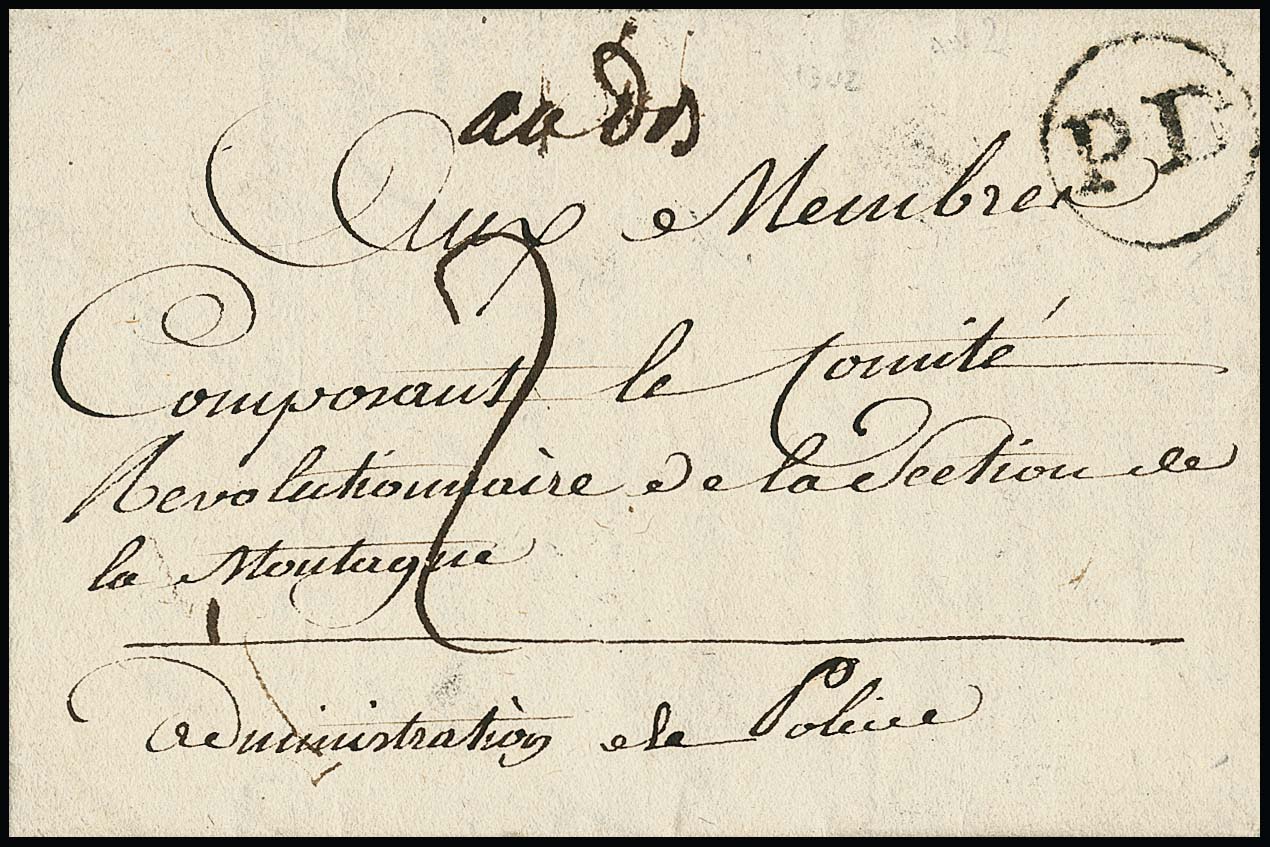 au Dos
P.D
Aux Membres
Composant le Comité
Revolutionnaire de la Section de
la Montagne
2
Administration de Police